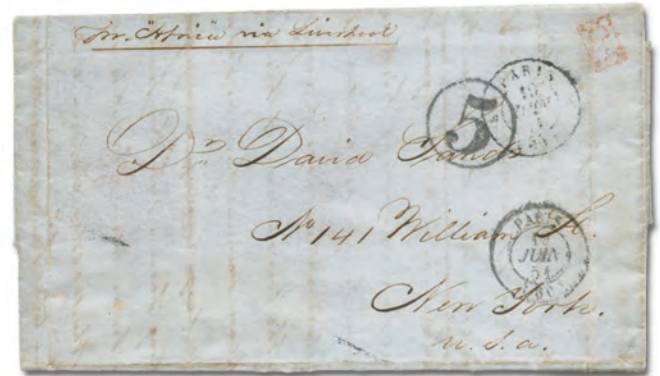 Per "Africa" via Liverpool
PARIS
5
Dr. David Sands
No 141 William St.
PARIS
JUIN
51
New York.
U. S. a.